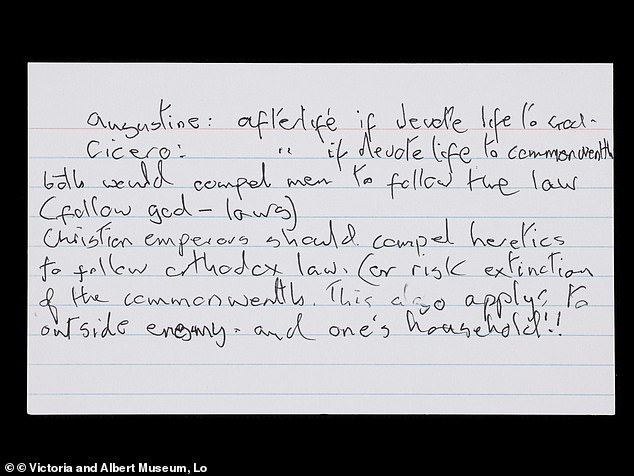 Augustine: afterlife if devote life to God.
Cicero: " if devote life to commonwealth
both would compel men to follow the law
(follow god-laws)
Christian emperors should compel heretics
to follow orthodox law. (or risk extinction
of the commonwealth. This also applys to
outside enemy - and one's household!!
© Victoria and Albert Museum, Lo